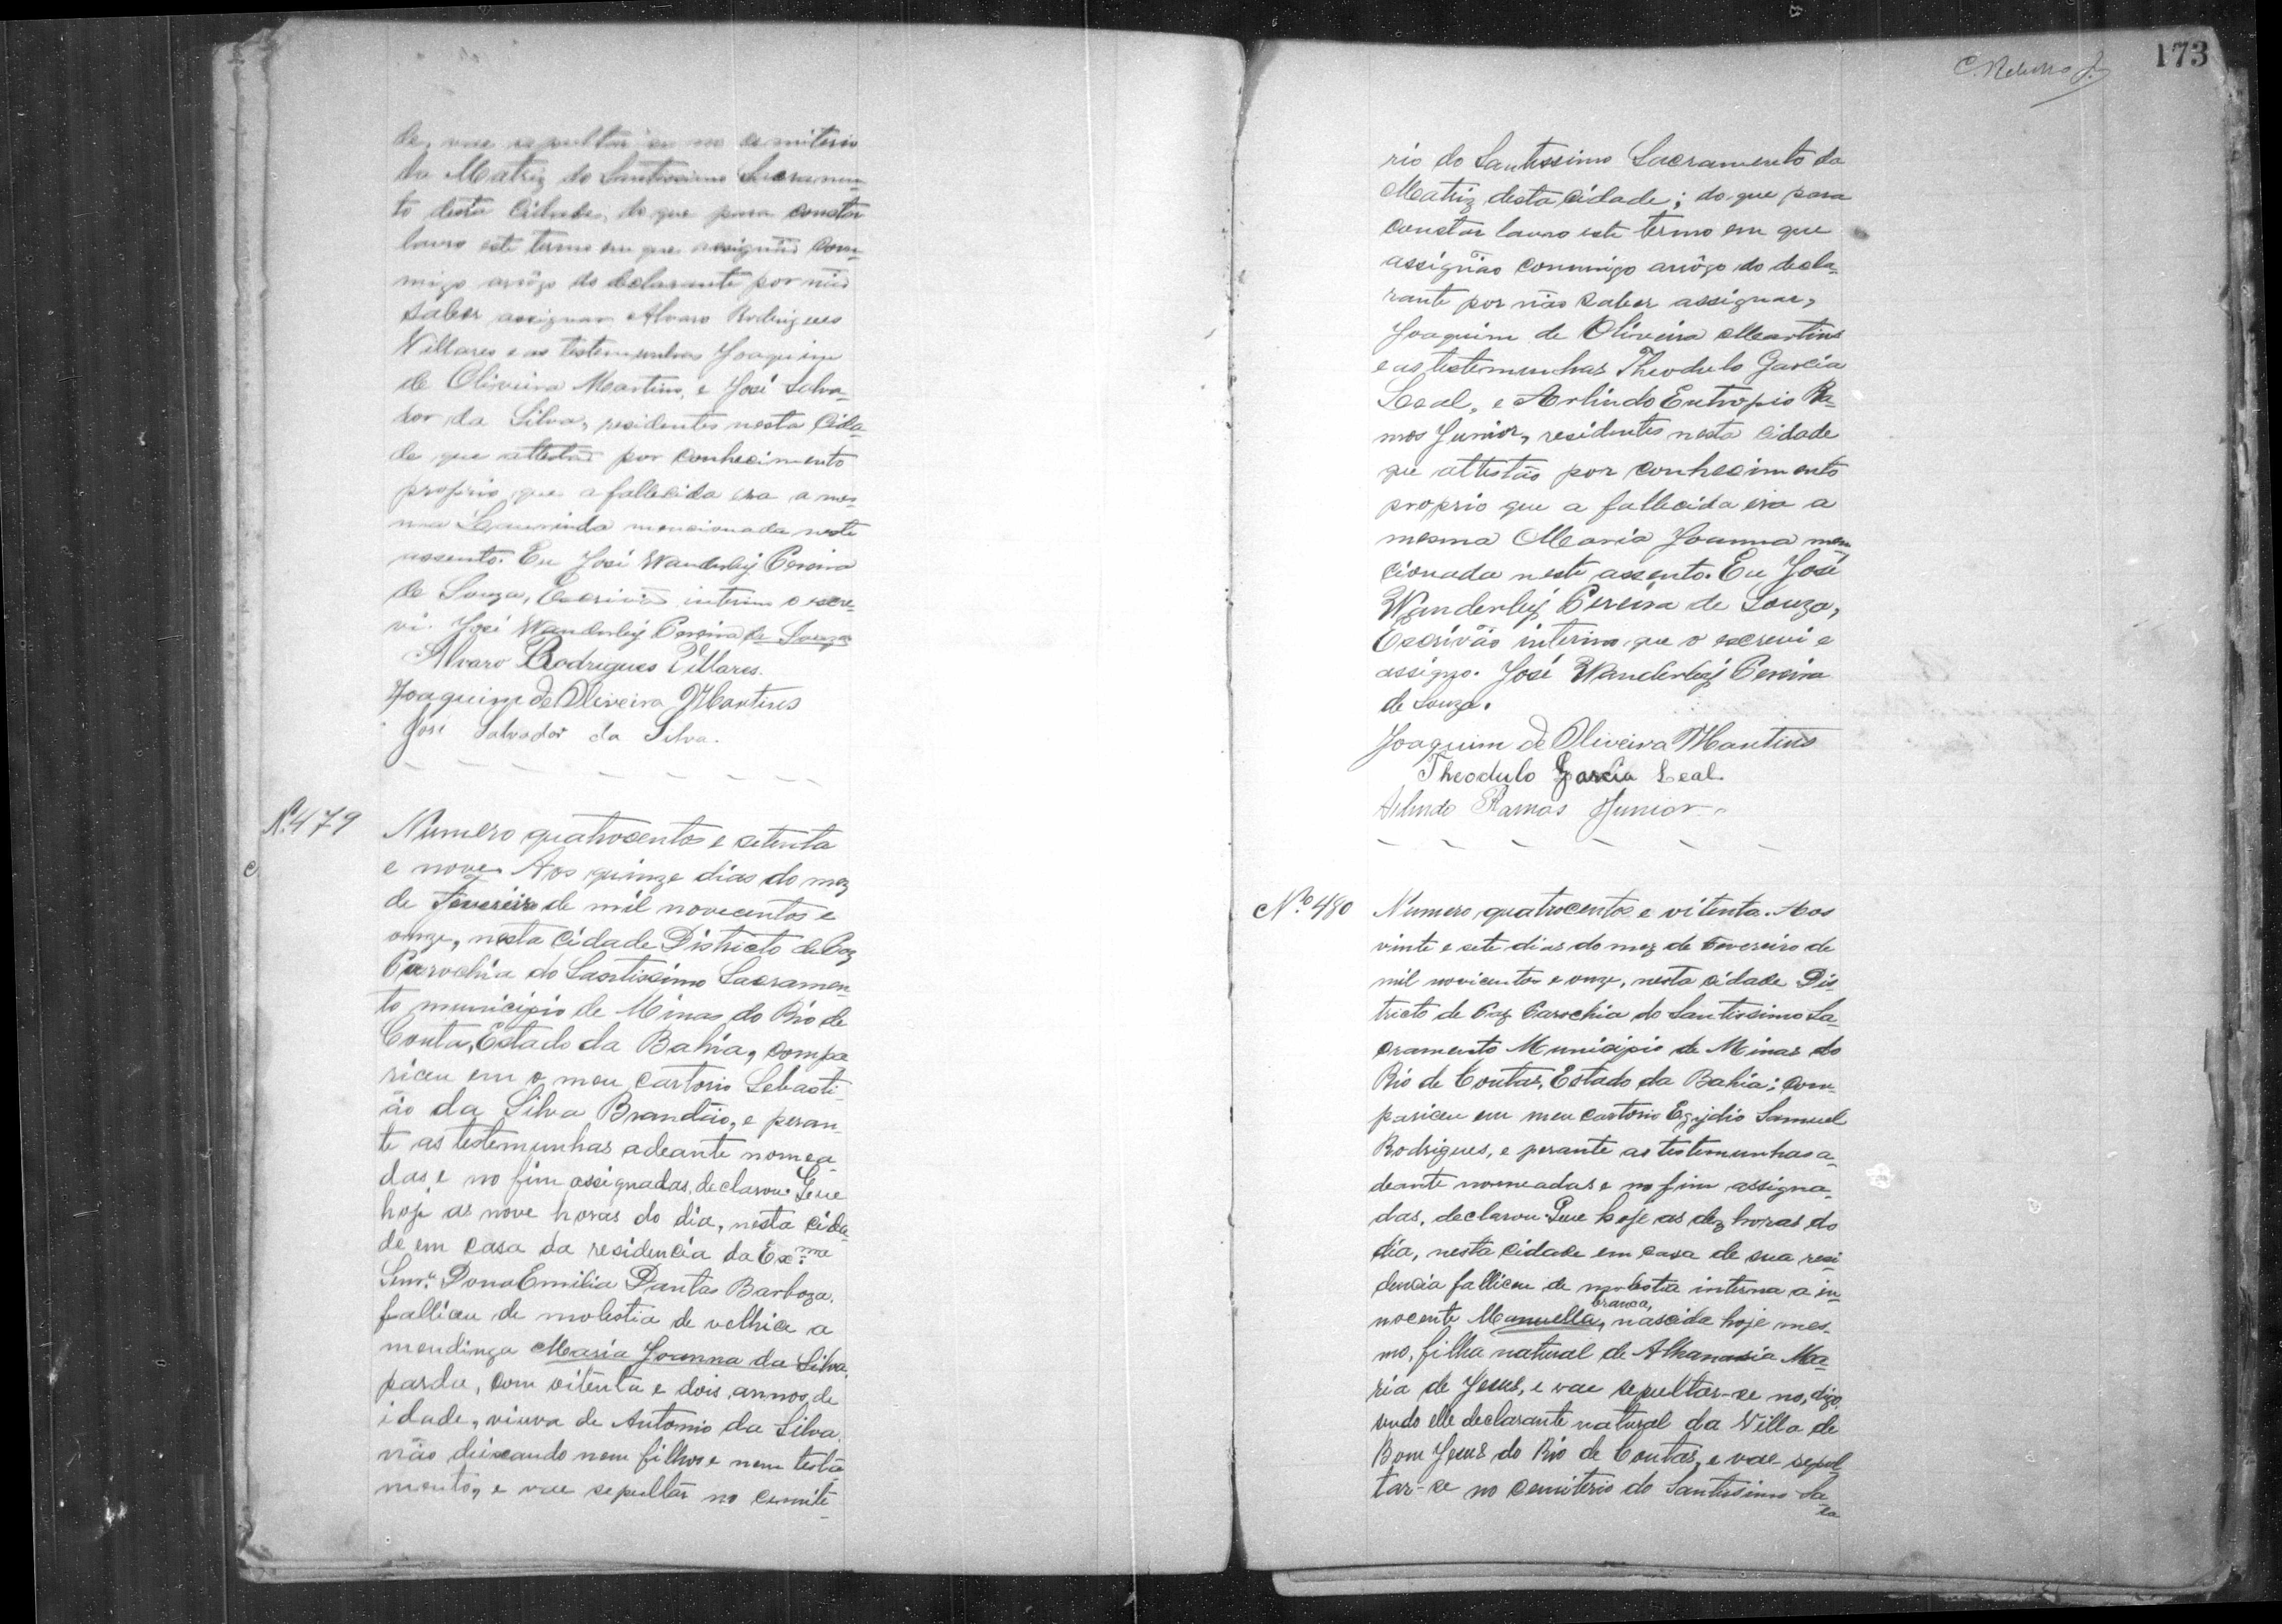 de, vae sepultar-se no cemiterio
da Matriz do Santissimo Sacramen-
to desta Cidade, do que para constar
lavro este termo em que assignão com-
migo arôgo do declarante por não
saber assignar Alvaro Rodrigues
Villares e as testemunhas Joaquim
de Oliveira Martins, e José Salva-
dor da Silva, residentes nesta Cida-
de que attestão por conhecimento
proprio que a fallecida era a mes-
ma Laurinda mencionada neste
assento. Eu José Wanderley Pereira
de Souza, Escrivão interino o escre-
vi. José Wanderley Pereira de Souza
Alvaro Rodrigues Villares.
Joaquim de Oliveira Martins
José Salvador da Silva.
Nº 479
Numero quatrocentos e setenta
e nove. Aos quinze dias do mez
de Fevereiro de mil novecentos e
onze, nesta Cidade Districto de Paz
Parochia do Santissimo Sacramen-
to municipio de Minas do Rio de
Conta, Estado da Bahia, compa
riceu em o meu cartorio Sebasti-
ão da Silva Brandão, e peran-
te as testemunhas adeante nomea-
das, e no fim assignadas, declarou: Que
hoje as nove horas do dia, nesta cida-
de em casa da residencia da Exma
Senrª Dona Emilia Dantas Barboza,
falliceu de molestia de velhice a
mendinga Maria Joanna da Silva,
parda, com oitenta e dois annos de
idade, viuva de Antonio da Silva,
não deixando nem filhos e nem testa-
mento, e vae sepultar no cemite-
173
rio do Santissimo Sacramento da
Matriz desta Cidade; do que para
constar lavro este termo em que
assignão commigo arôgo do decla-
rante por não saber assignar,
Joaquim de Oliveira Martins
e as testemunhas Theodulo Garcia
Leal, e Arlindo Eutropio Ra-
mos Junior, residentes nesta cidade
que attestão por conhecimento
proprio que a fallecida era a
mesma Maria Joanna men-
cionada neste assento. Eu José
Wanderley Pereira de Souza,
Escrivão interino que o escrevi e
assigno. José Wanderley Pereira
de Souza.
Joaquim de Oliveira Martins
Theodulo Garcia Leal.
Arlindo Ramos Junior
Nº 480
Numero quatrocentos e oitenta. Aos
vinte e sete dias do mez de Fevereiro de
mil novicentos e onze, nesta cidade Dis-
tricto de Paz Parochia do Santissimo Sa-
cramento Municipio de Minas do
Rio de Contas, Estado da Bahia; com-
pariceu em meu cartorio Egydio Samuel
Rodrigues, e perante as testemunhas a-
deante nomeadas e no fim assigna-
das, declarou: Que hoje as dez horas do
dia, nesta cidade em casa de sua resi-
dencia falliceu de molestia interna a in-
nocente Manuella, branca, nascida hoje mes-
mo, filha natural de Athanasia Ma-
ria de Jesus, e vae sepultar-se no, digo,
sendo elle declarante natural da Villa de
Bom Jesus do Rio de Contas, e vae sepul-
tar-se no cemiterio do Santissimo Sa-